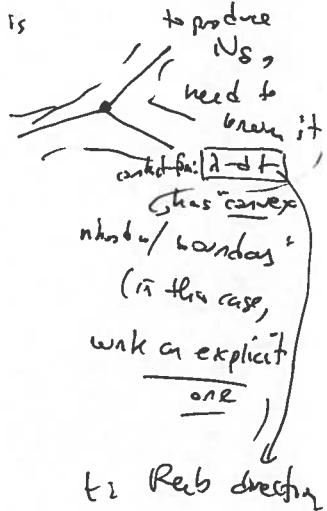 is
to produce
N_δ,
need to
know it
contact form: λ - dt
has "convex
nhood w/ boundary"
(in this case,
write an explicit
one
t: Reeb direction